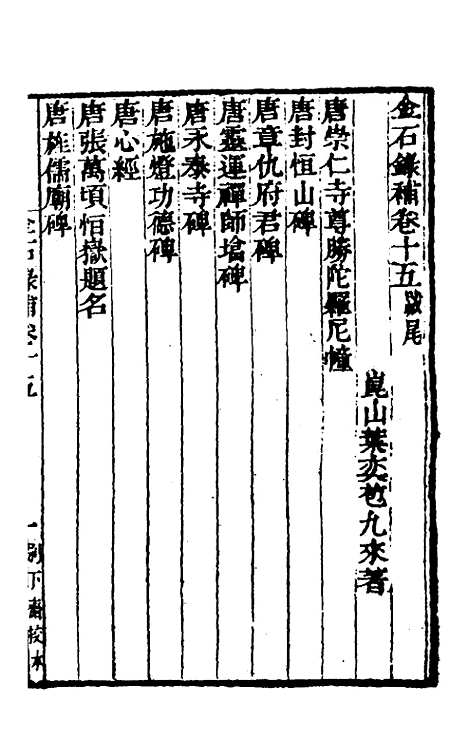 金石錄補卷十五 跋尾
崑山葉奕苞九來著
唐崇仁寺尊勝陀羅尼幢
唐封恒山碑
唐章仇府君碑
唐靈運禪師塔碑
唐永泰寺碑
唐施燈功德碑
唐心經
唐張萬頃恒嶽題名
唐旌儒廟碑
金石錄補卷十五
一 別下齋校本